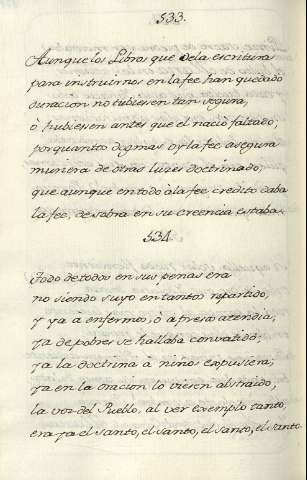 533.
Aunque los Libros que dela escritura
para instruirnos en la fee han quedado
duracion no tubiesen tan segura,
ò hubiesen antes que el nació faltado;
por quantos dogmas oy la fee asegura
munera de otras luzes doctrinado,
que aunque en todo à la fee credito daba
la fee, de sobra en su creencia estaba.
534.
Todo de todos en sus penas era
no siendo suyo en tantos repartido,
y ya à enfermos, ò a presos atendia,
ya de pobres se hallaba convatido;
ya la doctrina à niños expusiera,
ya en la oracion lo viesen abstraido,
la voz del Puello, al ver exemplo tanto,
era ya el santo, el santo, el santo, el santo.